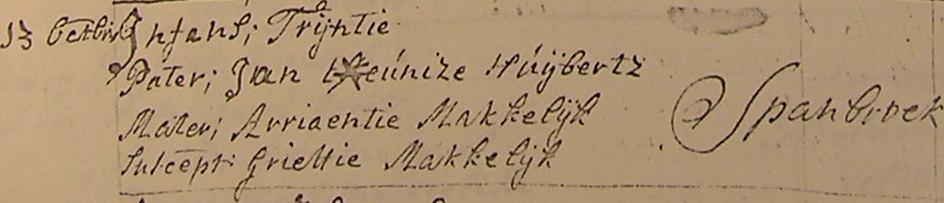 13 octbris Infans; Trijntie
Pater; Jan Teunize Huijbertz
Mater; Arriaentie Makkelijk
Suscept: Grietie Makkelijk
Spanbroek